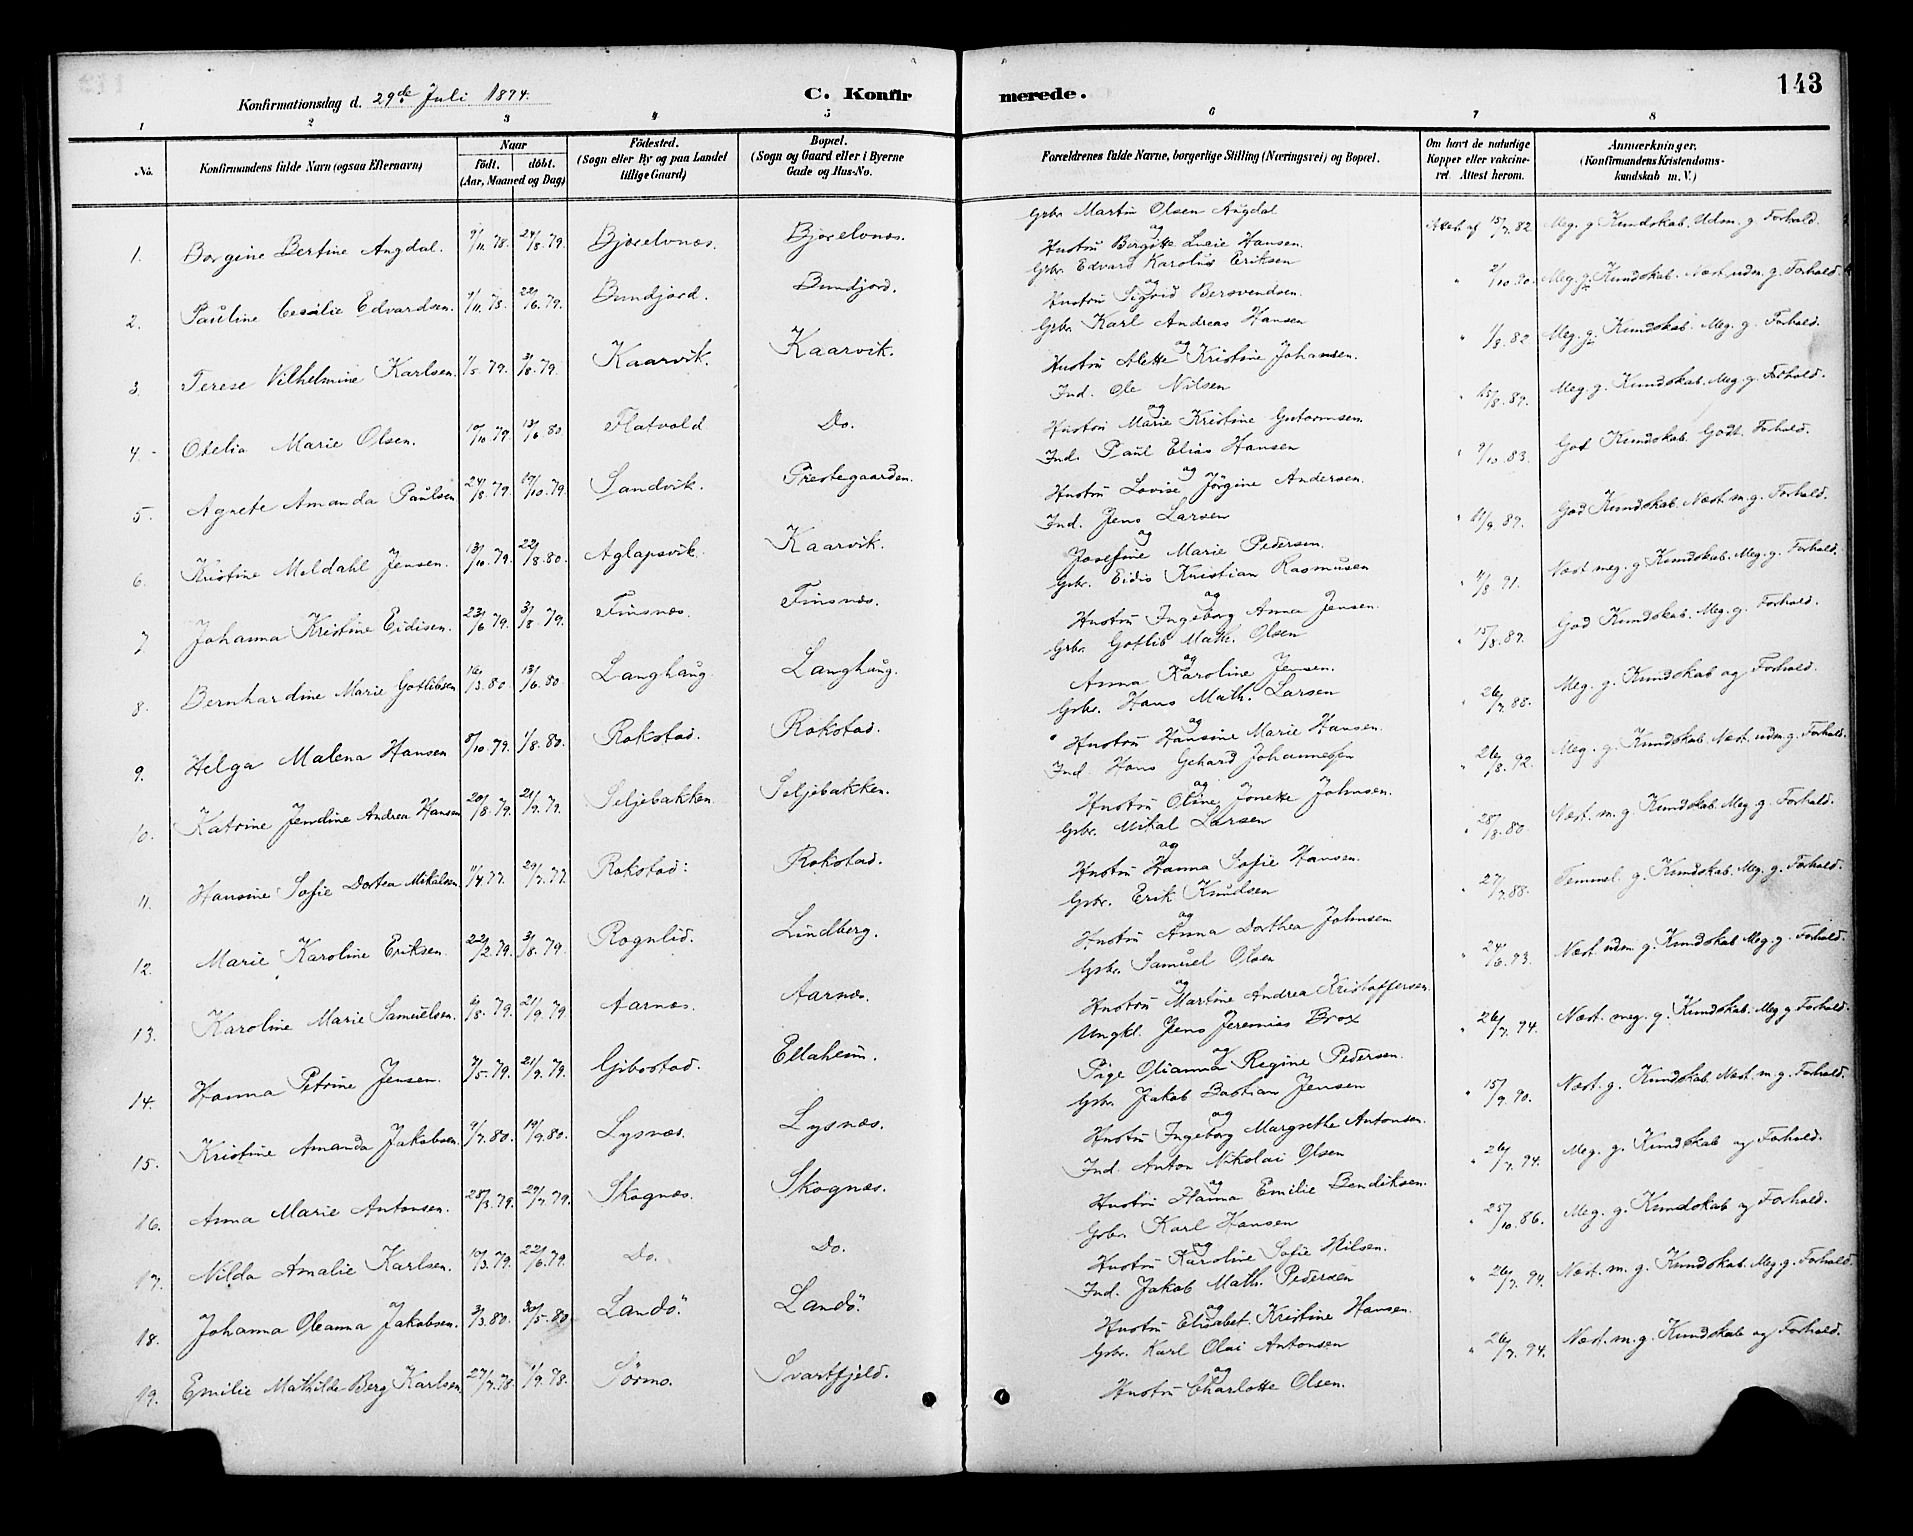 143
Konfirmationsdag d. 29de Juli 1894.
C. Konfirmerede.
1 2 3 4 5 6 7 8
No. Konfirmandens fulde Navn (ogsaa Efternavn) Naar født, døbt. (Aar, Maaned og Dag) Fødested. (Sogn eller By og paa Landet tillige Gaard) Bopæl. (Sogn og Gaard eller i Byerne Gade og Hus-No. Forældrenes fulde Navne, borgerlige Stilling (Næringsvei) og Bopæl. Om havt de naturlige Kopper eller vakcineret. Attest herom. Anmærkninger. (Konfirmandens Kristendomskundskab m. V.)
1. Borgine Bertine Angdal. 9/11.78. 24/8.79. Bjorelvnæs. Bjorelvnæs. Gbr. Martin Olsen Augdal og Hustru Birgitte Lucie Hansen. Attest af 15/7.82 Meg. g. Kundskab. Udm. g. Forhold.
2. Pauline Cecilie Edvardsen. 22/6.79. Bundjord. Bundjord. Gbr. Edvard Karolius Eriksen og Hustru Sigrid Bersvendsen. " 2/10.80. Meg. g. Kundskab. Næst udm. g. Forhold.
3. Terese Vilhelmine Karlsen. 1/5.79. 3/8.79. Kaarvik. Kaarvik. Gbr. Karl Andreas Hansen og Hustru Alette Kristine Johansen. " 1/8.82 Meg. g. Kundskab. Meg. g. Forhold.
4. Otelia Marie Olsen. 10/10.79 13/6.80 Flatvold Do. Ind. Ole Nilsen og Hustru Marie Kristine Gutormsen. " 15/8.89. Meg. g. Kundskab. Meg. g. Forhold.
5. Agnete Amanda Paulsen 24/8.79. 19/10.79. Sandvik. Prestegaarden. Ind. Paul Elias Hansen og Hustru Lovise Jørgine Andersen. " 9/10.83. God Kundskab. Godt. Forhold.
6. Kristine Meldahl Jensen. 13/10.79. 22/8.80. Aglapsvik. Kaarvik. Ind. Jens Larsen og Josefine Marie Pedersen. " 21/9.89. God Kundskab. Næst m. g. Forhold.
7. Johanna Kristine Eidisen. 23/6.79. 3/8.79. Finsnæs. Finsnæs. Gbr. Eidis Kristian Rasmusen og Hustru Ingeborg Anna Jensen. " 4/8 91. Næst meg. g. Kundskab. Meg. g. Forhold.
8. Bernhardine Marie Gotlibsen 16/3.80. 13/6.80. Langhaug. Langhaug. Gbr. Gotlib Math. Olsen og Anna Karoline Jensen. " 15/8.89. God Kundskab. Meg. g. Forhold.
9. Helga Malena Hansen 8/10.79. 1/8.80. Rokstad. Rokstad. Gbr. Hans Math. Larsen og Hustru Hansine Marie Hansen. " 26/7.88. Meg. g. Kundskab og Forhold.
10. Katrine Jendine Andrea Hansen 20/8.79. 21/9.79. Seljebakken. Seljebakken. Ind. Hans Gehard Johannesen og Hustru Oline Jonette Johnsen. " 26/8.92. Meg. g. Kundskab. Næst udm. g. Forhold.
11. Hansine Sofie Dortea Mikalsen. 11/4.77. 29/7.77. Rokstad. Rokstad. Gbr. Mikal Larsen og Hustru Hanna Sofie Hansen. " 28/8.80. Næst. m. g. Kundskab. Meg g. Forhold.
12. Marie Karoline Eriksen. 22/2.79. 3/8.79. Rognlid. Lindberg. Gbr. Erik Knudsen og Hustru Anna Dorthea Johnsen " 27/7.88. Temmel. g. Kundskab. Meg. g. Forhold.
13. Karoline Marie Samuelsen. 6/8.79. 21/9.79 Aarnæs. Aarnæs. Gbr. Samuel Olsen og Hustru Martine Andrea Kristoffersen. " 24/6.93. Næst udm. g. Kundskab. Meg. g. Forhold.
14. Hanna Petrine Jensen. 7/5.79. 21/9.79. Gibostad. Ellaheim. Ungkl. Jens Jeremias Brox og Pige Olianna Regine Pedersen. " 26/7.94. Næst. meg. g. Kundskab. Meg g. Forhold.
15. Kristine Amanda Jakobsen. 9/7.80. 19/9.80. Lysnæs. Lysnæs. Gbr. Jakob Bastian Jensen og Hustru Ingeborg Margrethe Antonsen. " 15/9.90. Næst. g. Kundskab. Næst. m. g. Forhold.
16. Anna Marie Antonsen. 28/3.79. 29/7.79. Skognæs. Skognæs. Ind. Anton Nikolai Olsen og Hustru Hanna Emilie Bendiksen. " 26/7.94. Meg. g. Kundskab og Forhold.
17. Nilda Amalie Karlsen. 10/3.79. 22/6.79. Do. Do. Gbr. Karl Hansen og Hustru Karoline Sofie Nilsen. " 25/10.86. Meg. g. Kundskab og Forhold.
18. Johanna Oleanna Jakobsen. 3/3.80. 30/5.80 Landö. Landö. Ind. Jakob Math. Pedersen og Hustru Elisabet Kristine Hansen. " 26/7.94. Næst. m. g. Kundskab. Meg g. Forhold.
19. Emilie Mathilde Berg Karlsen 27/7.78. 1/9.78. Sörmo. Svartfjeld. Gbr. Karl Olai Antonsen og Hustru Charlotte Olsen. " 26/7.94. Næst. m. g. Kundskab og Forhold.